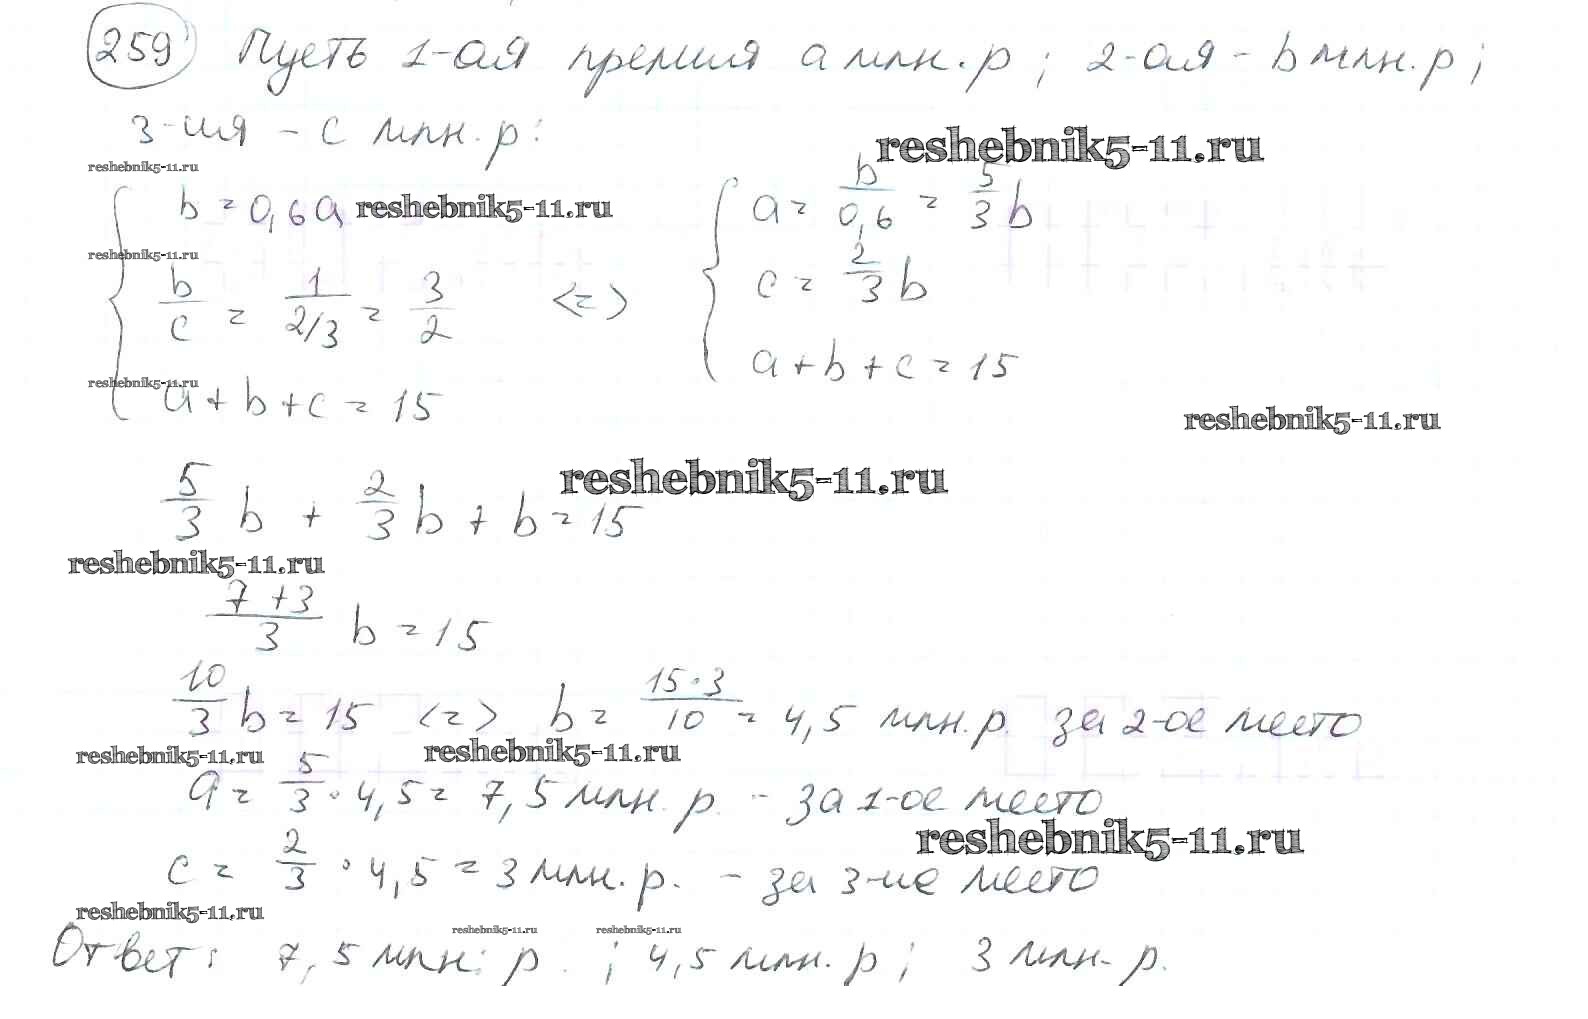 259 Пусть 1-ая премия a млн. р ; 2-ая - b млн. р ;
3-ия - c млн. р :
reshebnik5-11.ru
reshebnik5-11.ru
b = 0,6a reshebnik5-11.ru
a = b/0,6 = 5/3 b
reshebnik5-11.ru
b/c = 1/(2/3) = 3/2 <=> c = 2/3 b
a + b + c = 15
reshebnik5-11.ru
a + b + c = 15
reshebnik5-11.ru
reshebnik5-11.ru
5/3 b + 2/3 b + b = 15
reshebnik5-11.ru
(7 + 3)/3 b = 15
10/3 b = 15 <=> b = (15·3)/10 = 4,5 млн. р. за 2-ое место
reshebnik5-11.ru reshebnik5-11.ru
a = 5/3 · 4,5 = 7,5 млн. р. - за 1-ое место
reshebnik5-11.ru
c = 2/3 · 4,5 = 3 млн. р. - за 3-ие место
reshebnik5-11.ru
reshebnik5-11.ru reshebnik5-11.ru
Ответ: 7,5 млн. р. ; 4,5 млн. р ; 3 млн. р.